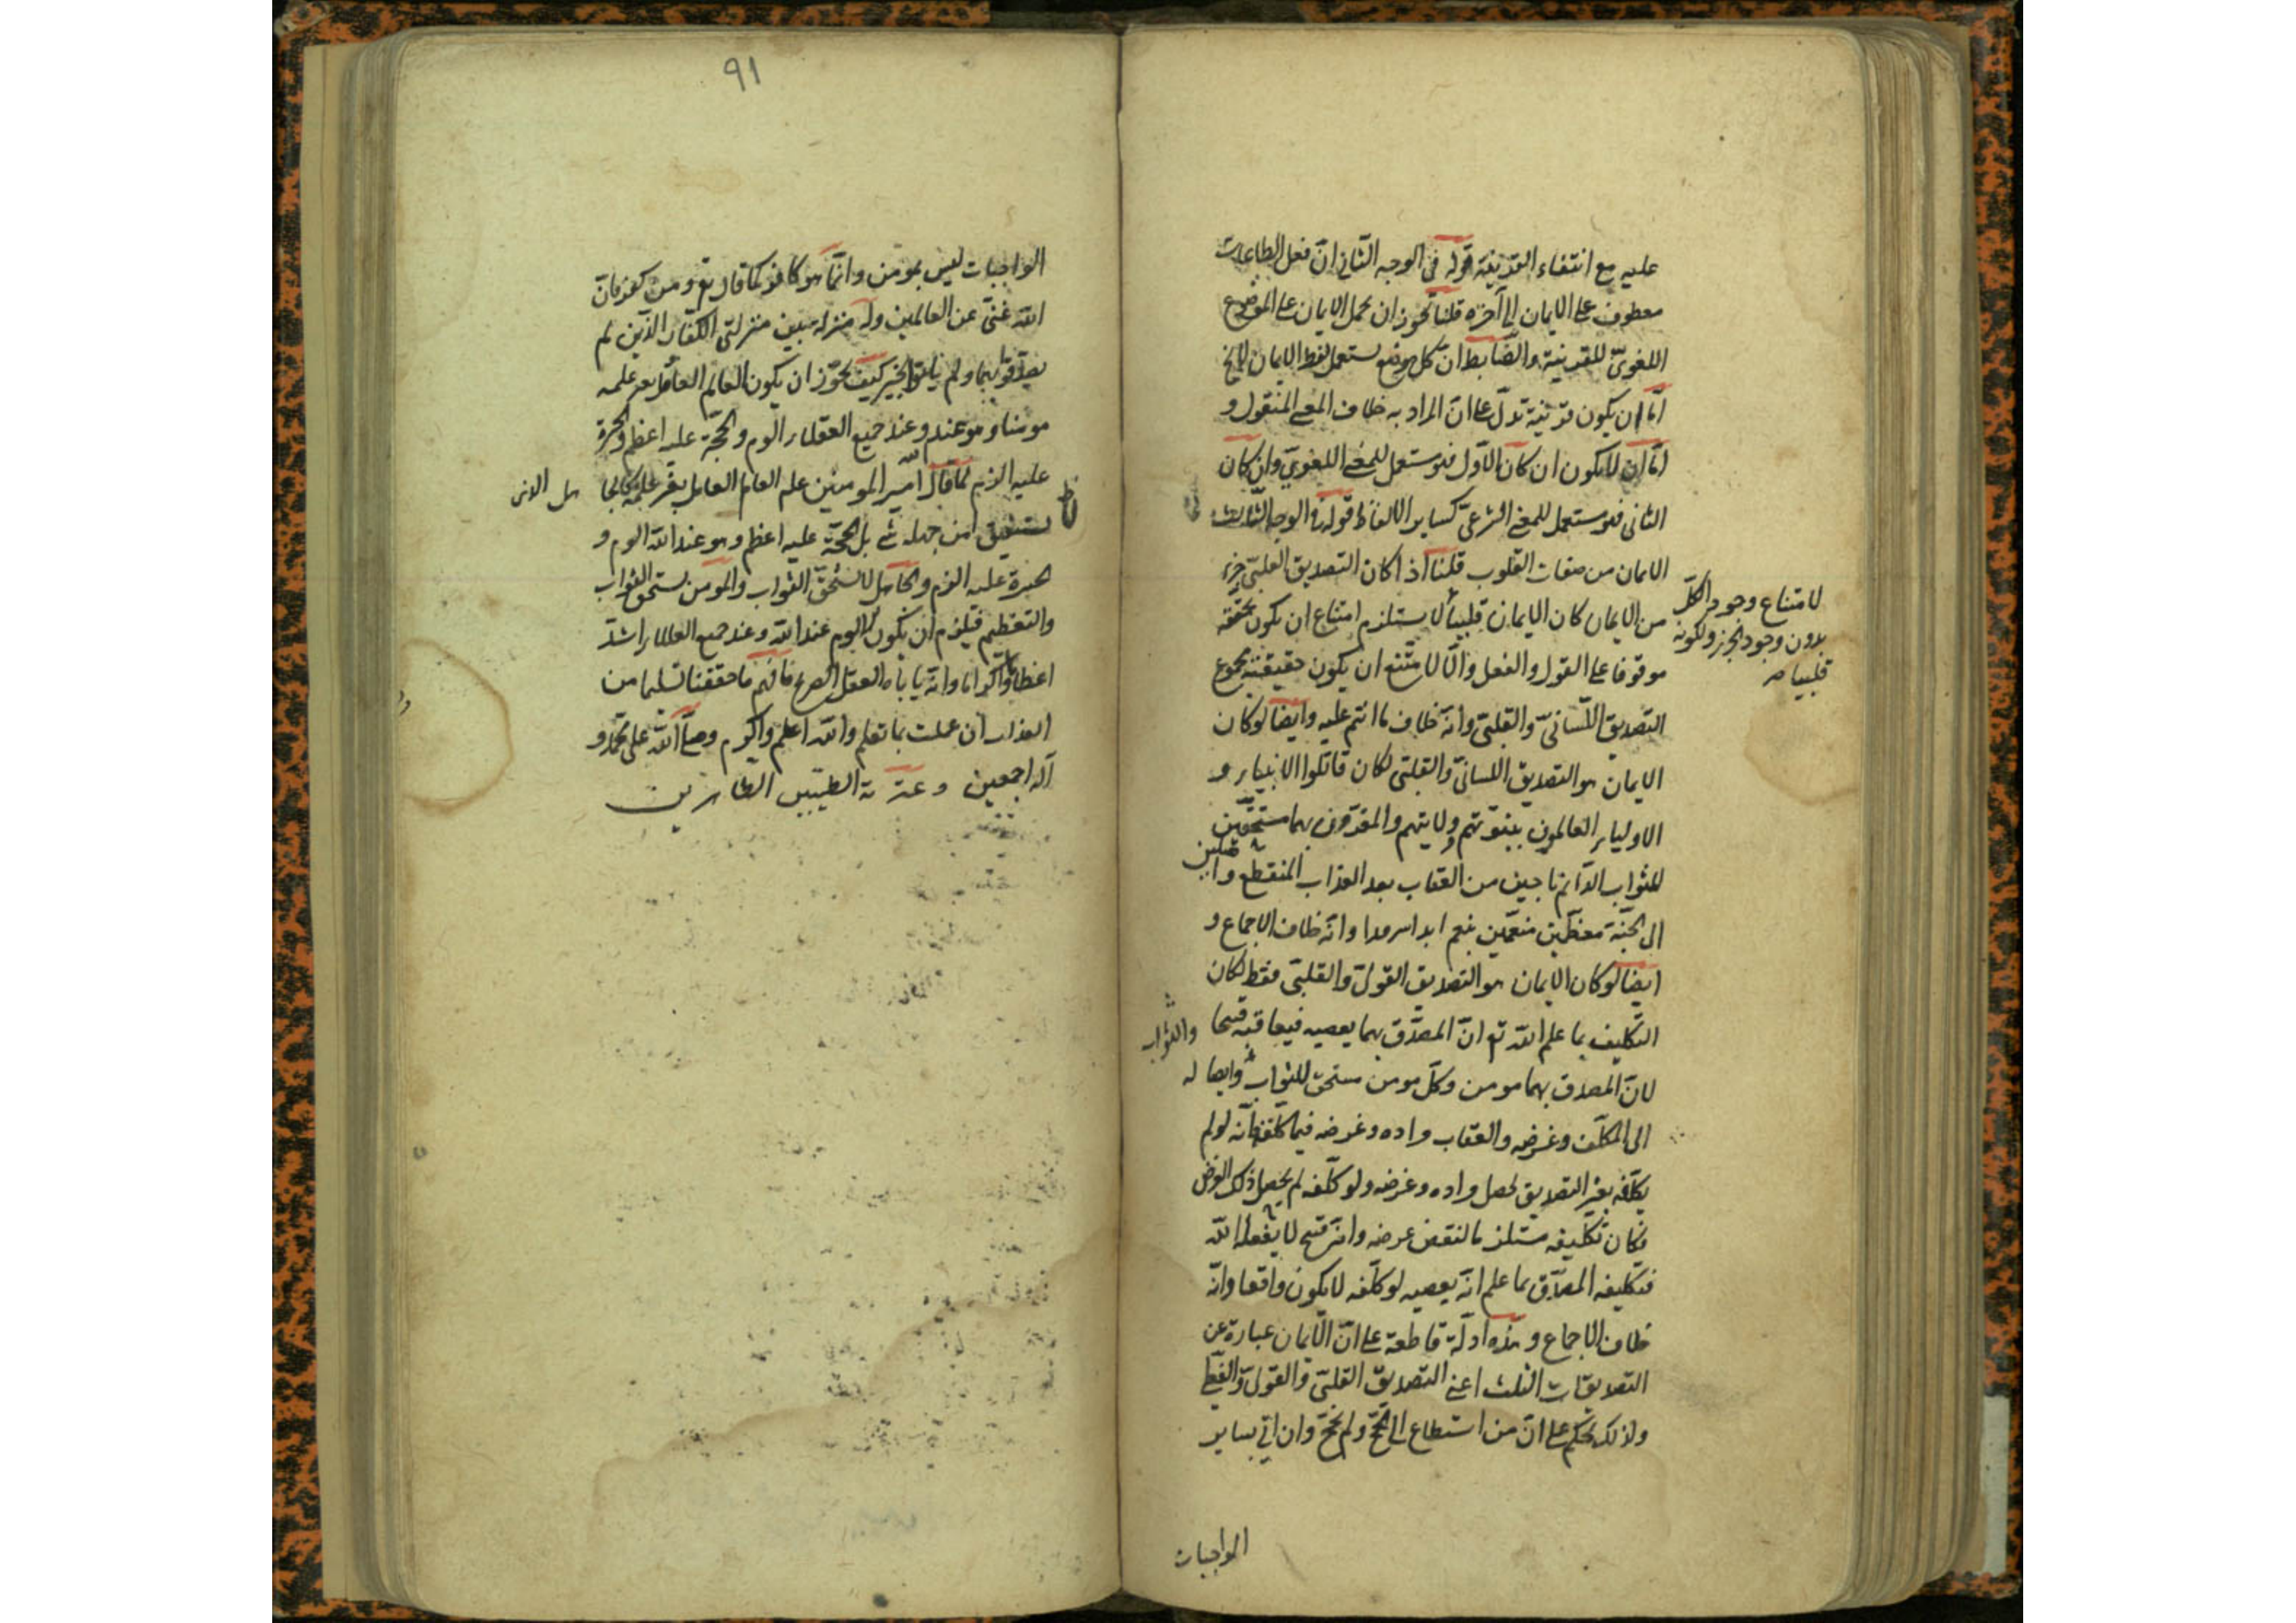 عليه مع انتفاء القرينة قوله في الوجه الثاني ان فعل الطاعات
معطوف على الايمان الى آخره قلنا نجوز ان يحمل الايمان على الموضوع
اللغوي للقرينة والضابط ان كل موضع يستعمل لفظ الايمان
امّا ان يكون قرينة تدلّ على انّ المراد به خلاف المعنى المنقول و
امّا ان لا يكون ان كان الاوّل فهو مستعمل للمعنى اللغوي وان كان
الثاني فهو مستعمل للمعنى الشرعي كساير الالفاظ قوله في الوجه الثالث
الايمان من صفات القلوب قلنا اذا كان التصديق القلبيّ جزء
من الايمان كان الايمان قلبيا لا يستلزم امتناع ان يكون تحققه
لامتناع وجود الكلّ
بدون وجود الجزء ولكونه
قلبيا
موقوفا على القول والفعل والّا لامتنع ان يكون حقيقته مجموع
التصديق اللسانيّ والقلبيّ وانه خلاف ما انتم عليه وايضا لو كان
الايمان هو التصديق اللسانيّ والقلبيّ لكان قاتلوا الانبياء و
الاولياء العالمون بنبوّتهم وولايتهم والمقرّون بهما مستحقّين
للثواب الدّائم ناجين من العقاب بعد العذاب المنقطع واخلين
الى الجنّة معظّمين منعّمين بنعم ابدا سرمدا وانّه خلاف الاجماع و
ايضا لو كان الايمان هو التصديق القولي والقلبيّ فقط لكان
التكليف بما علم الله تع انّ المصدّق بهما يعصيه فيعاقبه قبيحا
لانّ المصدق بهما مومن وكلّ مومن مستحق للثواب وايضا له
والثواب
الى المكلّف وغرضه والعقاب مراده وغرضه فيما كلّفه فانّه لو لم
يكلّفه بغير التصديق لحصل مراده وغرضه ولو كلّفه لم يحصل ذلك الغرض
فكان تكليفه مستلزما لنقض غرضه وانه قبيح لا يفعله الله
فتكليفه المصدّق بما علم انّه يعصيه لو كلّفه لا يكون واقعا وانّه
خلاف الاجماع وهذه ادلّة قاطعة على انّ الايمان عبارة عن
التصديقات الثلث اعني التصديق القلبيّ والقوليّ والفعليّ
ولذلك نحكم على انّ من استطاع الى الحجّ ولم يحجّ وان اتى بساير
الواجبات
٩١
الواجبات ليس بمومن وانّما هو كافر كما قال تع ومن كفر فانّ
الله غنيّ عن العالمين وله منزلة بين منزلتي الكفّار الذين لم
يصدّقوا بهما ولم ياتوا بخير كيف يجوّز ان يكون العالم العامل بغير علمه
مومنا وهو عند الله وعند جميع العقلاء الوم والحجّة عليه اعظم والحسرة
عليه الزم كما قال امير المومنين علم العالم العامل بغير علمه كالجا
هل الذى
لا يستفيق من جهله شئ بل الحجّة عليه اعظم وهو عند الله الوم و
الحسرة عليه الزم والجاهل لا يستحقّ الثواب والمومن يستحق الثواب
والتعظيم فيلزم ان يكون الوم عند الله وعند جميع العقلاء اشدّ
اعظاما واكراما وانّه ياباه العقل الصريح فافهم ما حققنا تسلما من
العذاب ان عملت بما تعلم والله اعلم واكرم وصلّى الله على محمّد و
آله اجمعين وعترته الطيّبين الطاهرين